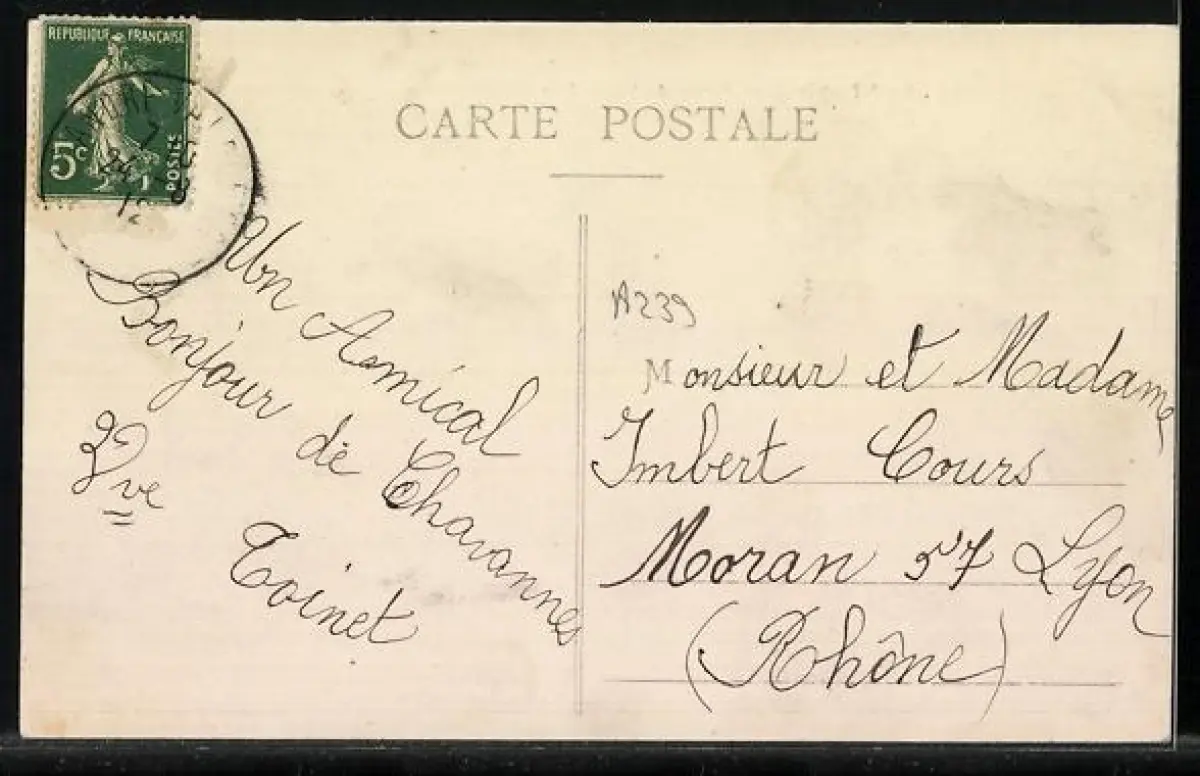 REPUBLIQUE FRANÇAISE
5c
POSTES
CARTE POSTALE
Un Amical
Bonjour de Chavannes
Vve
Toinet
A239
Monsieur et Madame
Imbert Cours
Moran 57 Lyon
(Rhône)